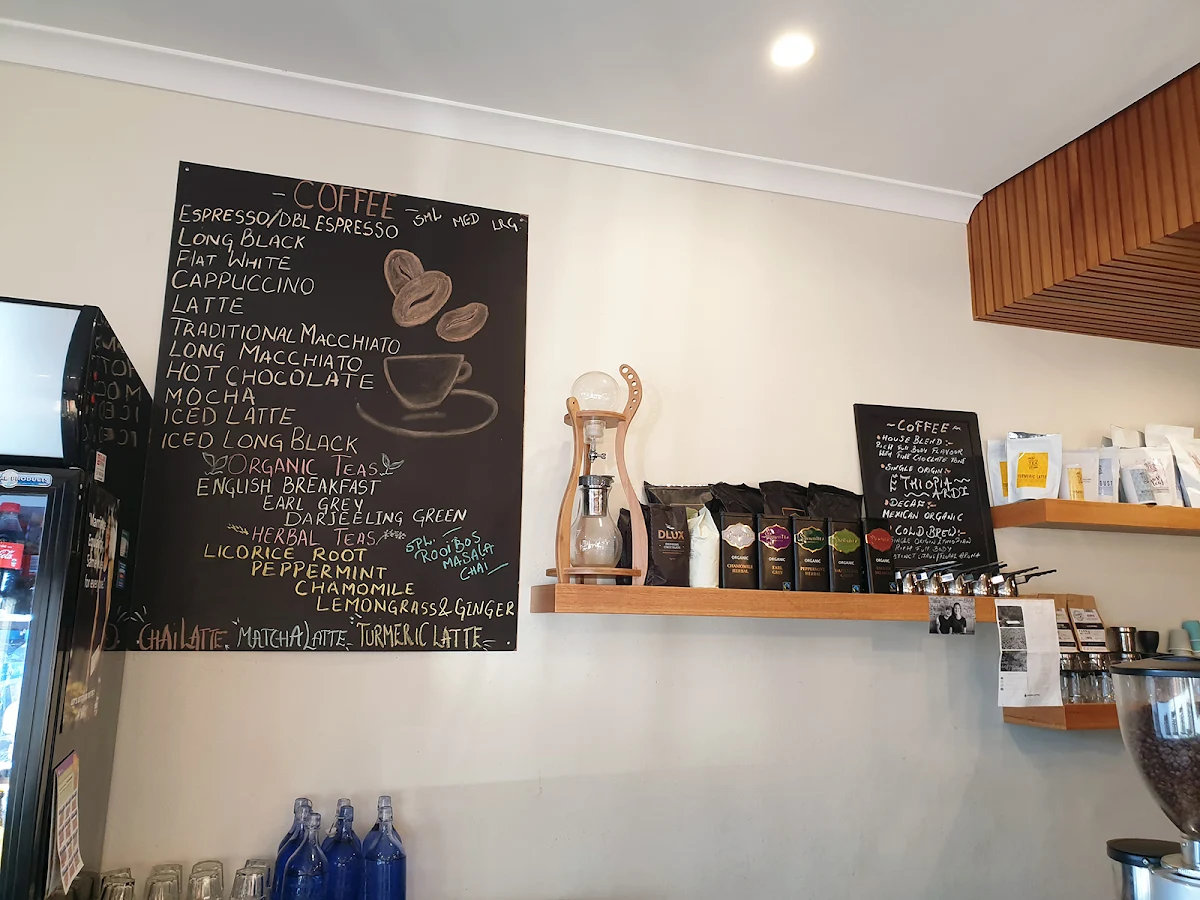 - COFFEE -
SML MED LRG
ESPRESSO/DBL ESPRESSO
LONG BLACK
FLAT WHITE
CAPPUCCINO
LATTE
TRADITIONAL MACCHIATO
LONG MACCHIATO
HOT CHOCOLATE
MOCHA
ICED LATTE
ICED LONG BLACK
ORGANIC TEAS
ENGLISH BREAKFAST
EARL GREY
DARJEELING GREEN
HERBAL TEAS
SPL:-
ROOIBOS
MASALA
CHAI
LICORICE ROOT
PEPPERMINT
CHAMOMILE
LEMONGRASS & GINGER
CHAI LATTE, MATCHA LATTE, TURMERIC LATTE
DLUX
ORGANIC
CHAMOMILE
HERBAL
ORGANIC
EARL
GREY
ORGANIC
PEPPERMINT
HERBAL
ORGANIC
~COFFEE~
HOUSE BLEND:-
RICH FULL BODY FLAVOUR
WITH FINE CHOCLATE TONE
SINGLE ORIGIN:-
ETHIOPIA
ARDI
DECAF:-
MEXICAN ORGANIC
COLD BREW:-
SINGLE ORIGIN ETHIOPIAN
TURMERIC LATTE
Coca-Cola